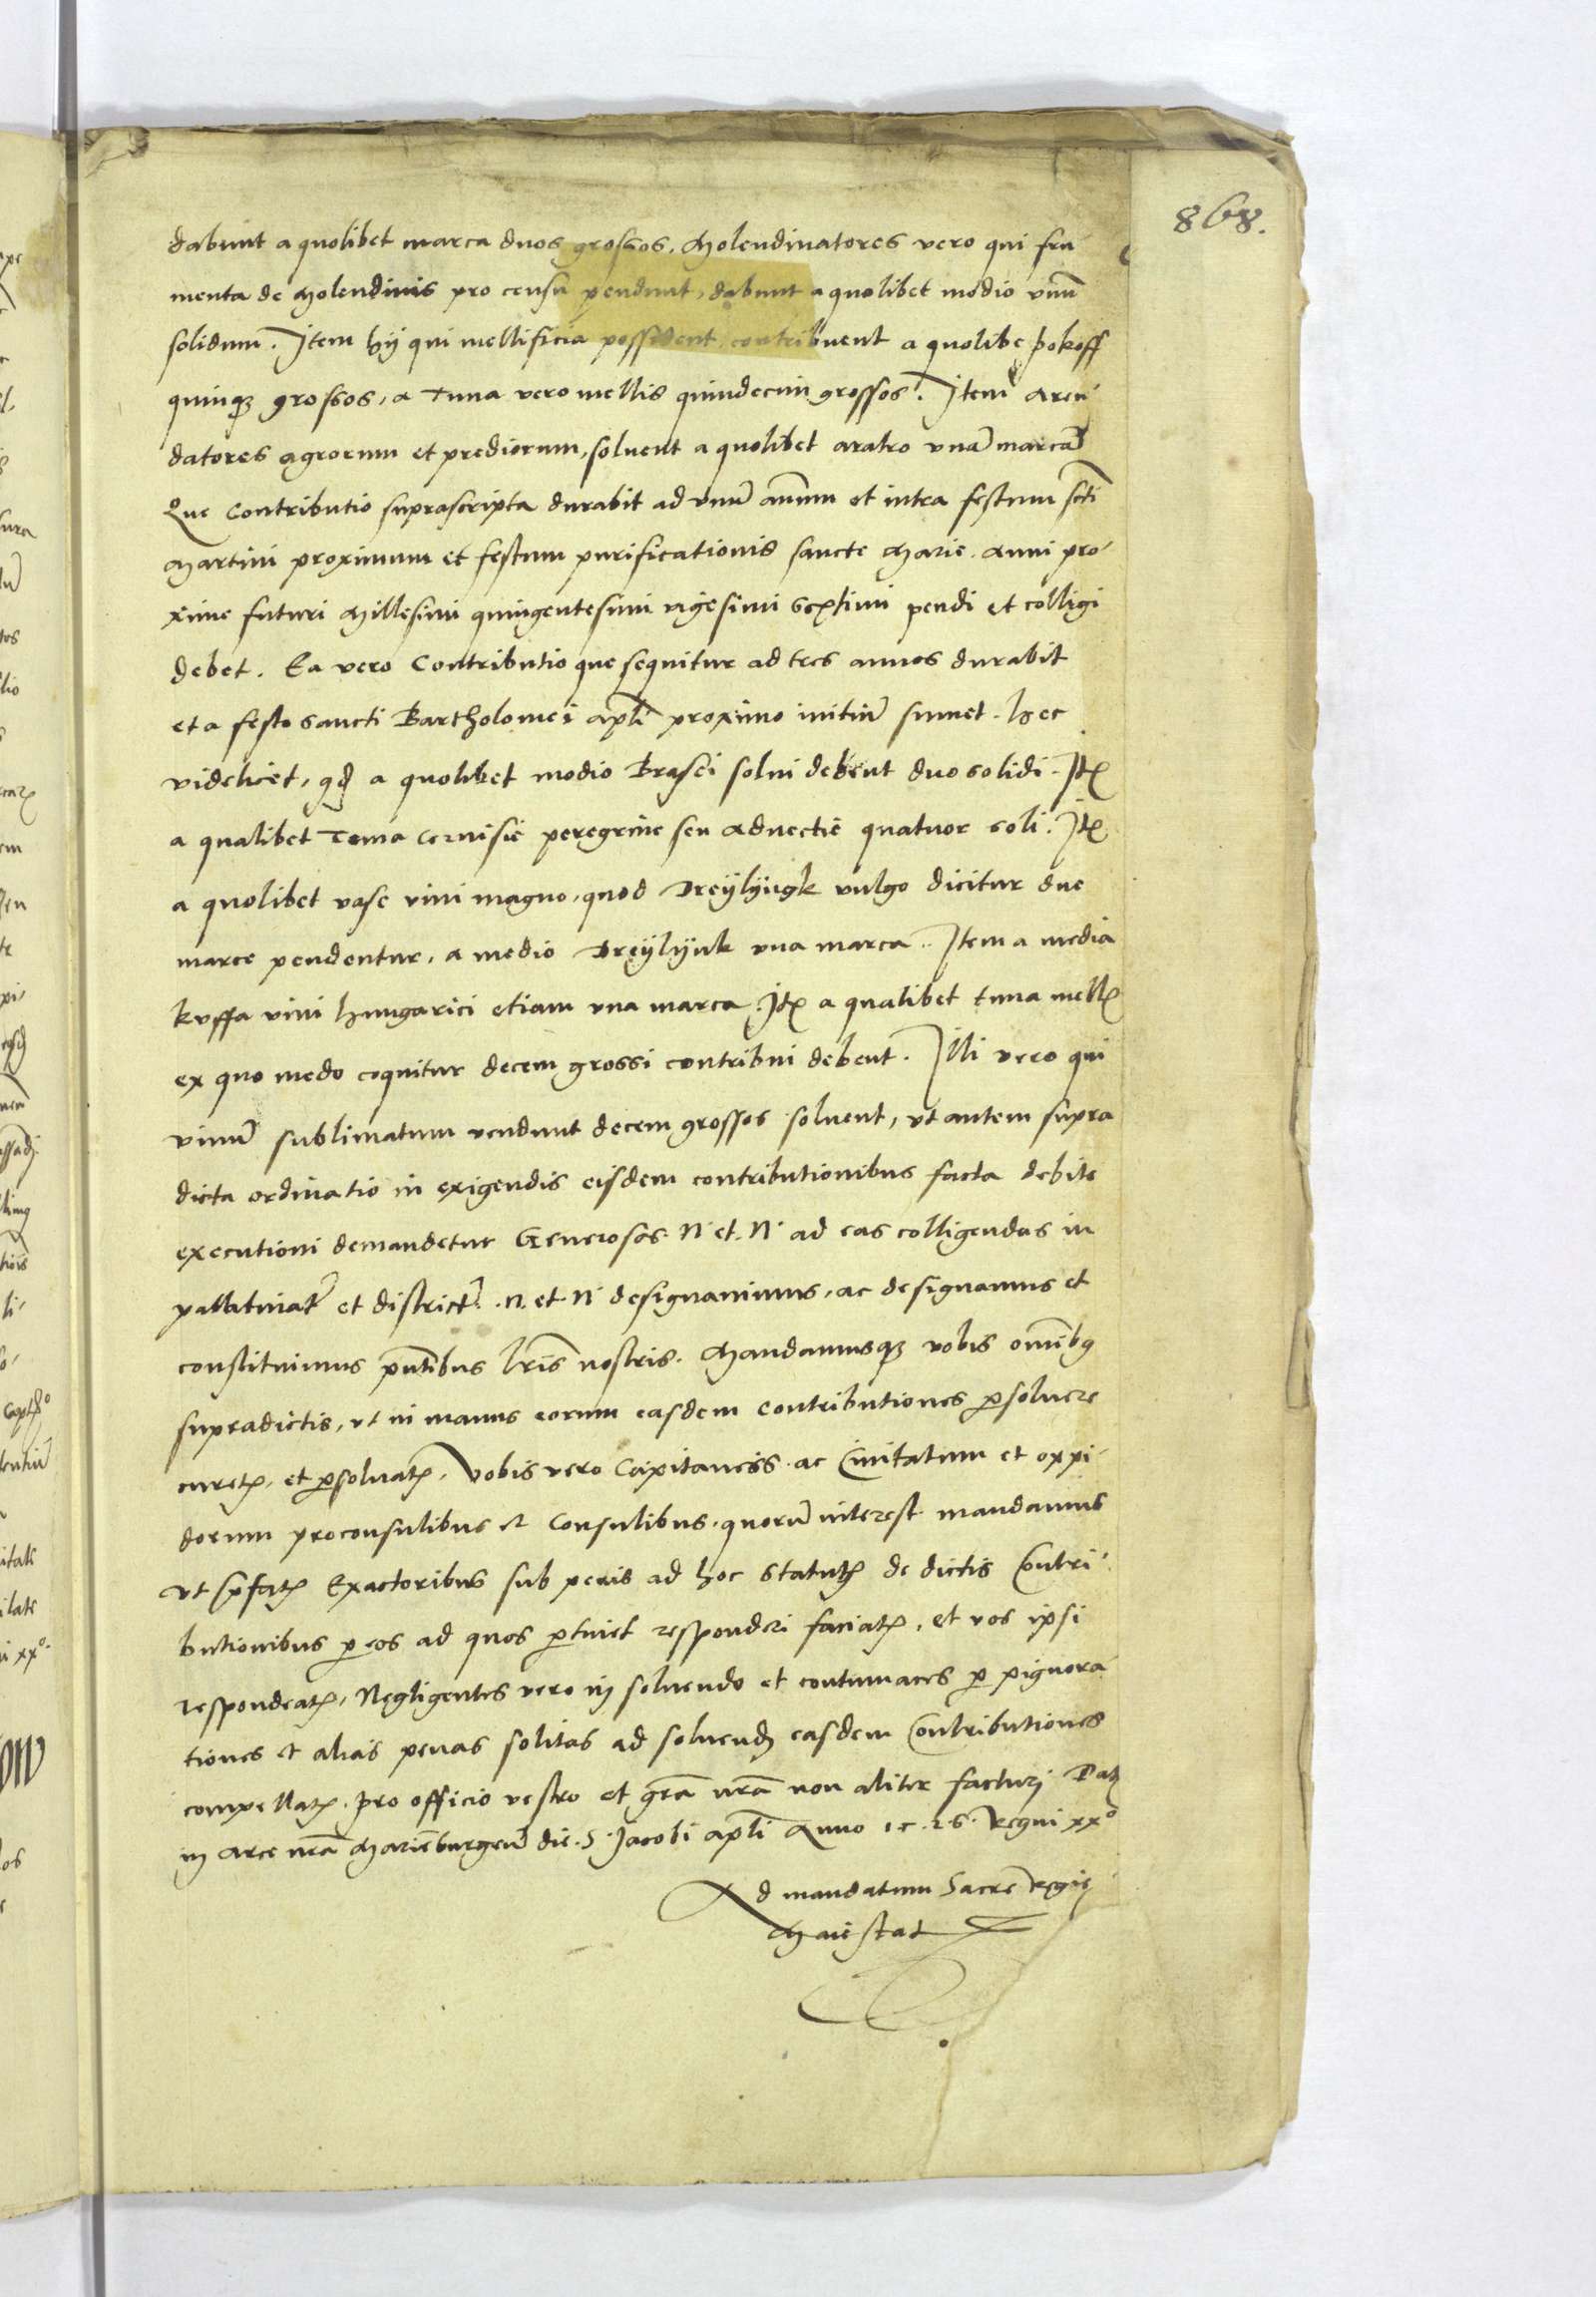 868.
dabunt a quolibet marca duos grossos. Molendinatores vero qui fru
menta de Molendinis pro censu pendunt, dabunt a quolibet modio vnũ
solidum. Item hÿ qui mellificia possident contribuent a quolibe pokoff
quinqz grossos, a Tuna vero mellis quindecim grossos. Item Aren
datores agrorum et prediorum, soluent a quolibet aratro vnã marcã
Que Contributio suprascripta durabit ad vnũ annum et intra festum scti
Martini proximum et festum purificationis sancte Marie. Anni pro-
xime futuri Millesimi quingentesimi vigesimi septimi pendi et colligi
debet. Ea vero Contributio que sequitur ad tres annos durabit
et a festo sancti Bartholomei apli proximo initiũ sumet. hec
videlicet, qd a quolibet modio Brasei solui debent duo solidi. Itẽ
a qualibet Tona Ceruisie peregrine seu aduectie quatuor soli. Itẽ
a quolibet vase vini magno, quod Dreÿlÿngk vulgo dicitur due
marce pendentur, a medio Dreÿlÿnk vna marca. Item a media
kuffa vini hungarici etiam vna marca. Itẽ a qualibet tuna mell
ex quo medo coquitur decem grossi contribui debent. Illi vero qui
vinũ sublimatum vendunt decem grossos soluent, vt autem supra
dicta ordinatio in exigendis eisdem contributionibus facta debite
executioni demandetur Generosos N et N ad eas colligendas in
pallatinatũ et districtũ .n. et N designauimus, ac designamus et
constituimus pntibus lris nostris. Mandamusqz vobis omĩbg
supradictis, vt in manus eorum easdem contributiones psoluere
curetz, et psoluatz. Vobis vero Capitaneis ac Ciuitatum et oppi-
dorum proconsulibus et Consulibus quorũ interest mandamus
vt pfatz Exactoribus sub penis ad hoc statutz de dictis Contri
butionibus p eos ad quos ptinet responderi faciatz, et vos ipsi
respondeatz, Negligentes vero in soluendo et contumaces p pignora
tiones et alias penas solitas ad soluend easdem Contributiones
compellatz. pro officio vestro et grã nrã non aliter facturj Datz
in Arce nrã Mariẽburgen die S. Jacobi apli Anno 15.26. Regni xxº
Ad mandatum Sacre Regie
Maiestat